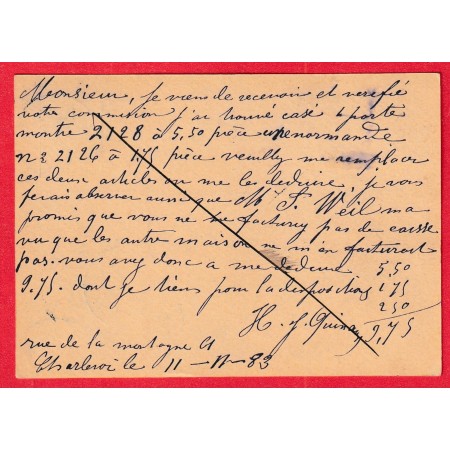 Monsieur, je viens de recevoir et verifié
votre commission j'ai trouvé casé 1 porte
montre 2128 à 5,50 pièce une normande
n: 2126 à 1.75 pièce veuillez me remplacer
ces deux articles ou me les deduire, je vous
ferais observer aussi que Mr J. Weil m'a
promis que vous ne me facturez pas de caisse
vu que les autre maison ne m'en facturait
pas. vous avez donc a me deduire 5,50
9.75. dont je tiens pour la disposition 1 75
2 50
H. J. 9,75
rue de la montagne 61
Charleroi le 11 - 11 - 83